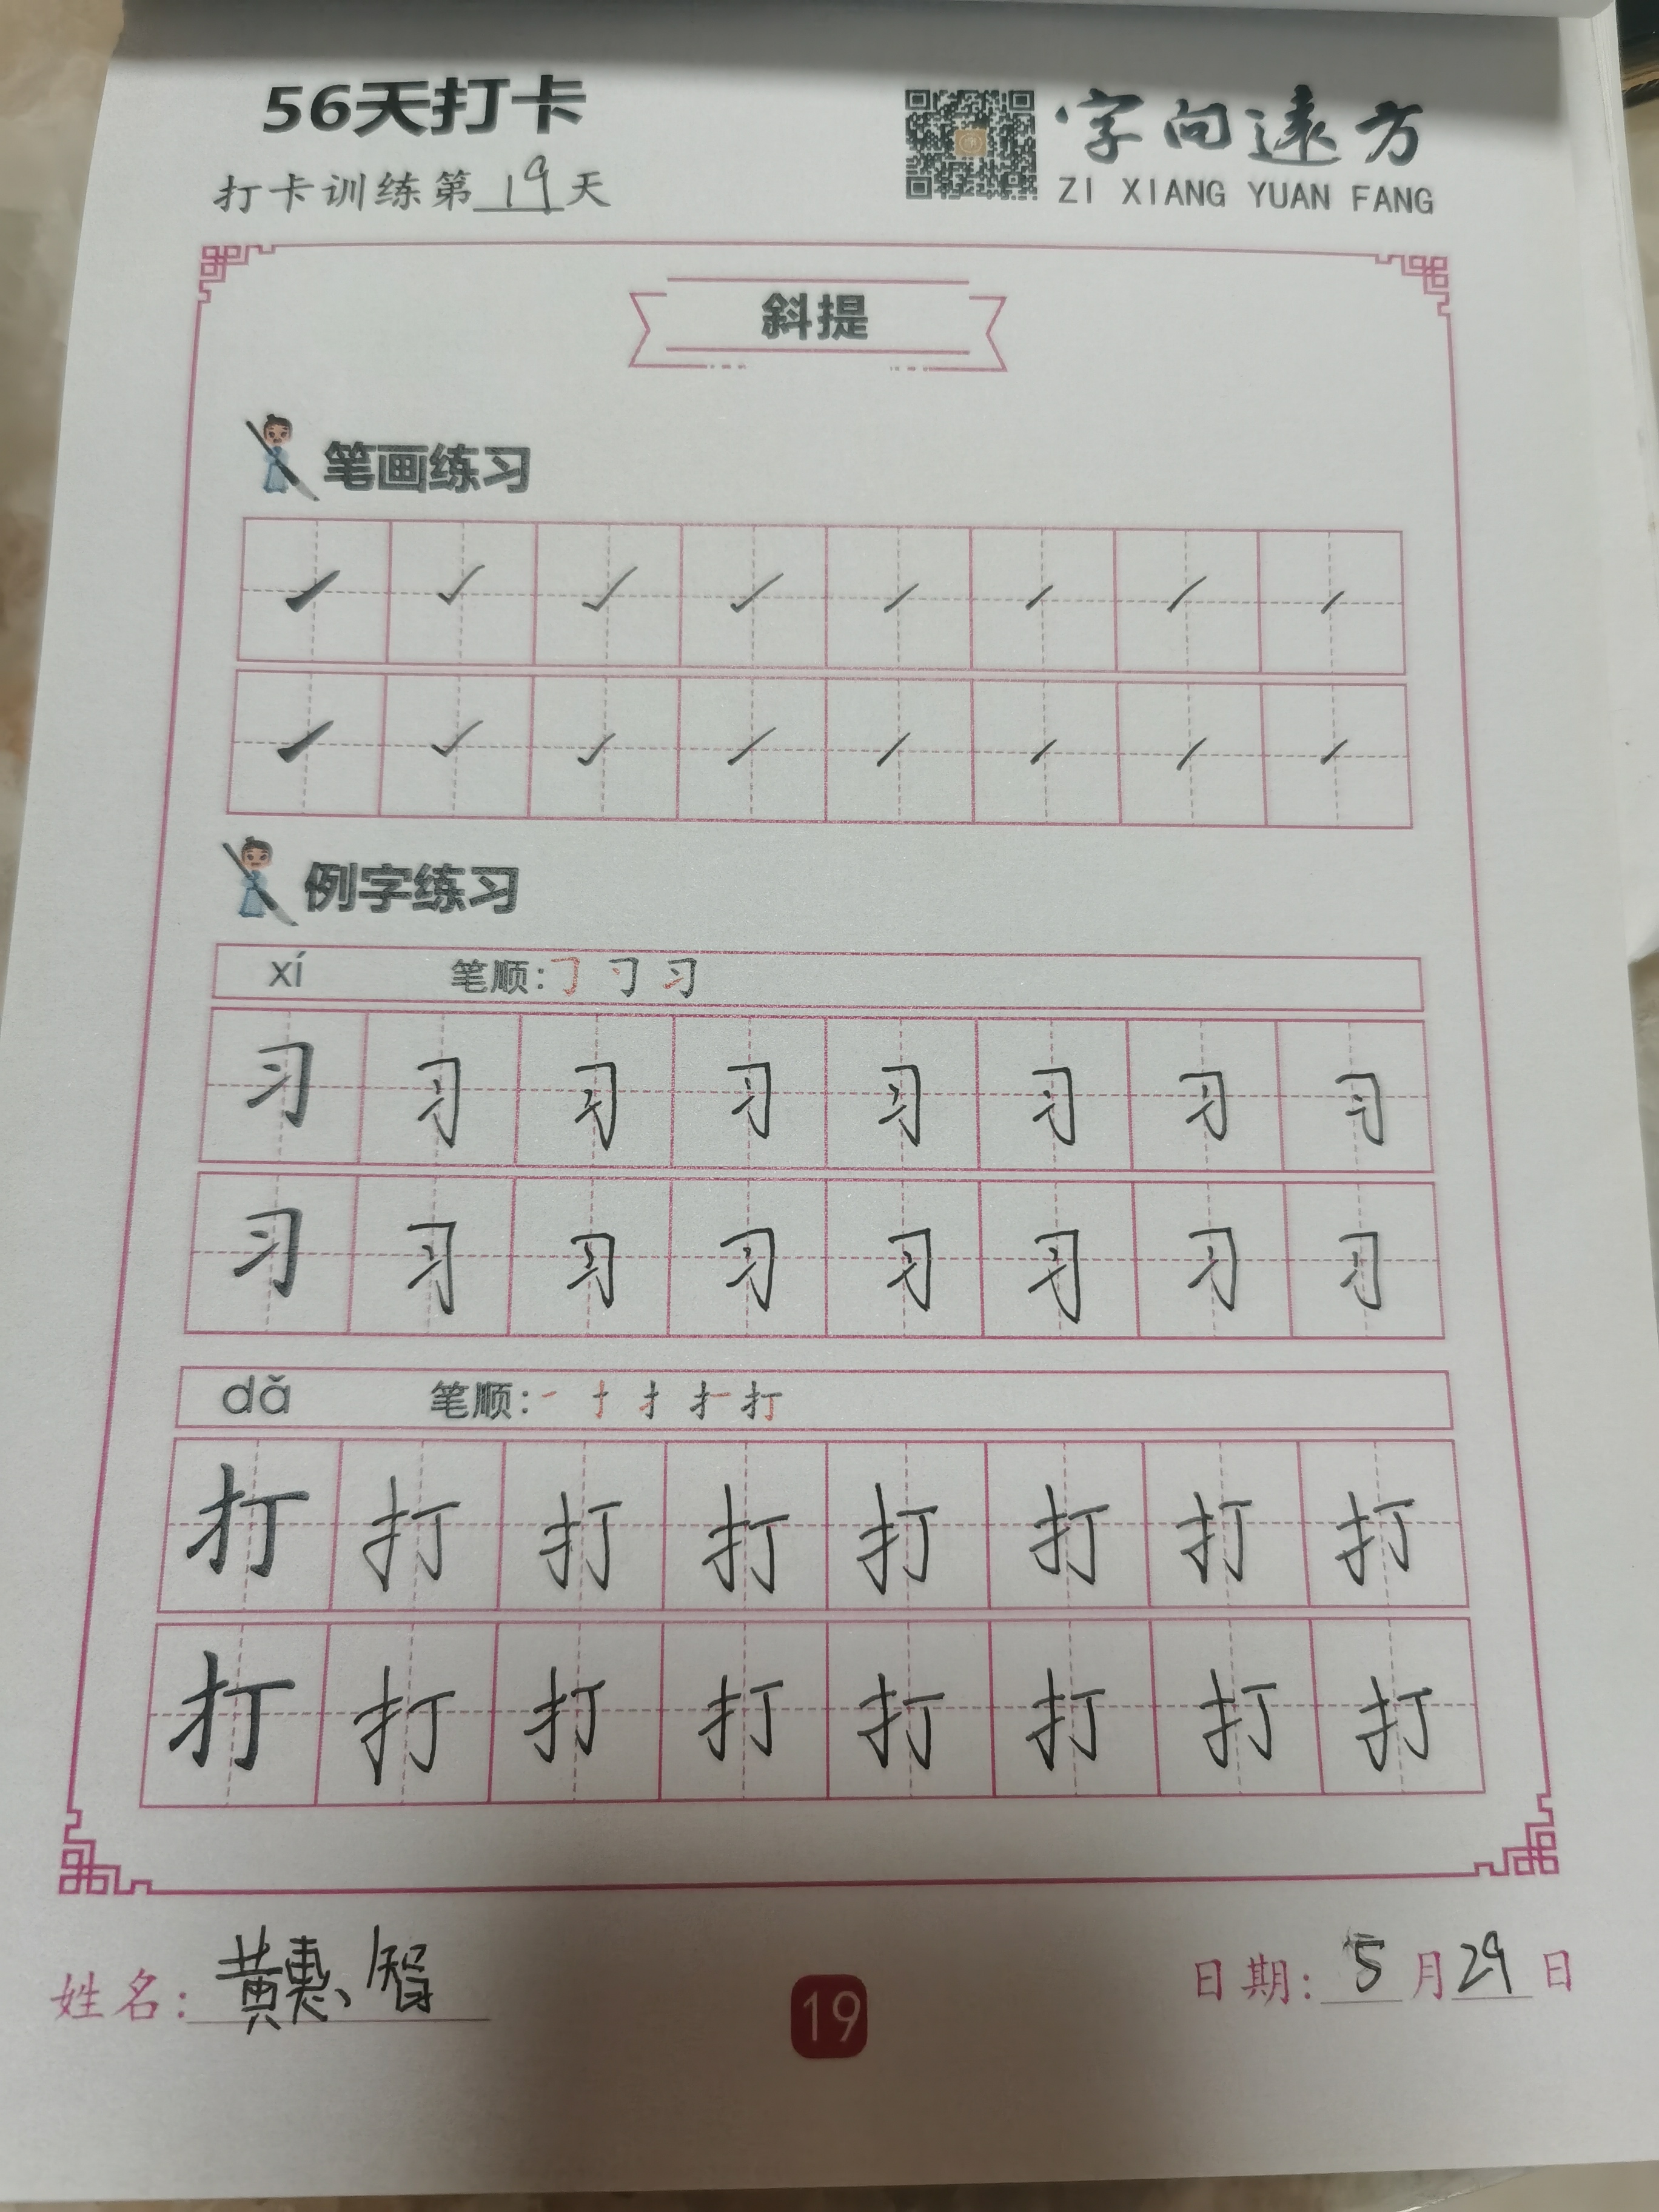 56天打卡
字向遠方
打卡训练第19天
ZI XIANG YUAN FANG
斜提
笔画练习
例字练习
xí 笔顺: ㇆ 习
习 习 习 习 习 习 习 习
习 习 习 习 习 习 习 习
dǎ 笔顺: 一 十 扌 扌一 打
打 打 打 打 打 打 打 打
打 打 打 打 打 打 打 打
姓名: 黄惠智
日期: 5月29日
19